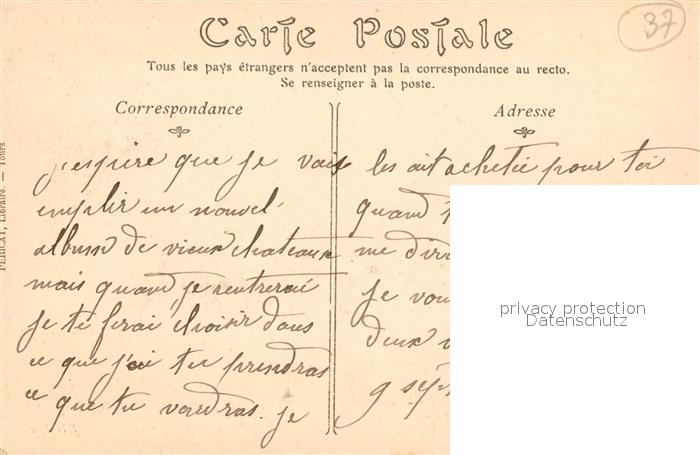 37
Carte Postale
Tous les pays étrangers n'acceptent pas la correspondance au recto.
Se renseigner à la poste.
Correspondance
Adresse
PERICAT, Libraire. — Tours
j'espère que je vais
emplir un nouvel
album de vieux chateaux
mais quand je rentrerai
je te ferai choisir dans
ce que j'ai tu prendras
ce que tu voudras. je
les ait achetée pour toi
quand
me
je
deux
9 sep
privacy protection
Datenschutz